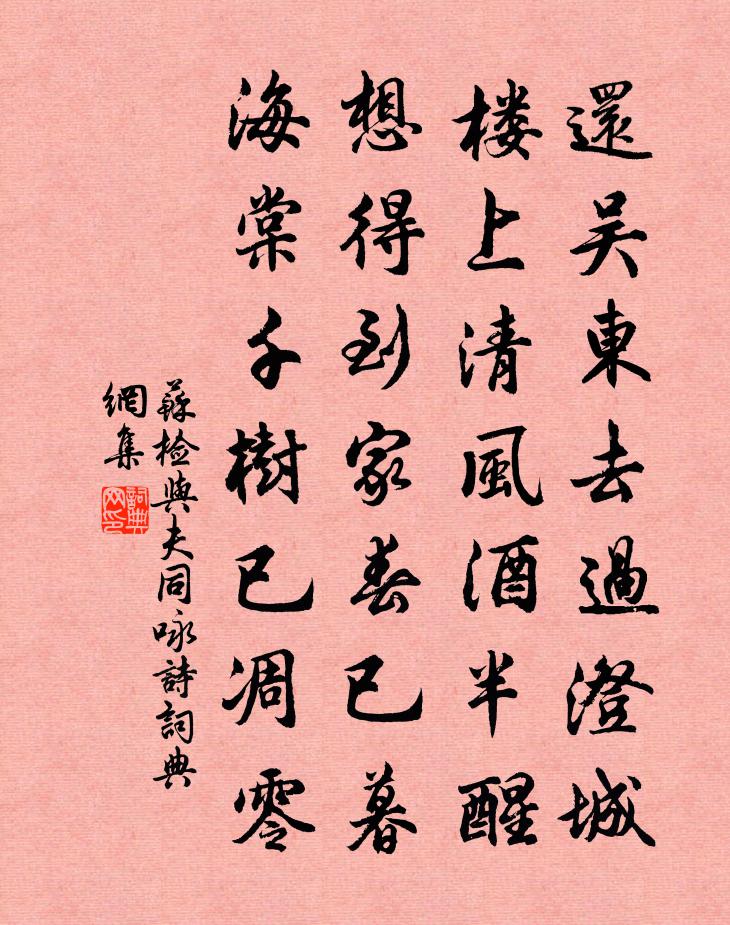 還吴東去過澄城
楼上清風酒半醒
想得到家春已暮
海棠千樹已凋零
蘇檢與夫同咏詩詞典
網集
詞典
网印